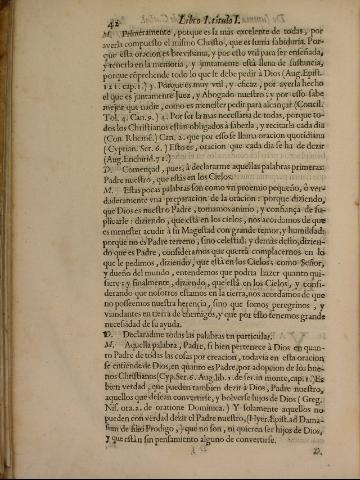 42 Libro I. titulo I.
M. Primeramente, porque es la mas excelente de todas, por
averla compuesto el mismo Christo, que es suma sabiduria. Por-
que esta oracion es brevissima, y por esso util para ser enseñada,
y tenerla en la memoria, y juntamente está llena de sustancia,
porque cõprehende todo lo que se debe pedir à Dios (Aug. Epist.
121. cap. 1.) 3. Porque es muy vtil, y eficaz, por averla hecho
el que es juntamente Juez, y Abogado nuestro; y por esso sabe
mejor que nadie, como es menester pedir para alcançar (Concil.
Tol. 4. Can. 9.) 4. Por ser la mas necessaria de todas, porque to-
dos los Christianos están obligados à saberla, y recitarla cada dia
(Con. Rhemẽ.) Can. 2. que por esso se llama oracion quotidiana
(Cyprian. Ser. 6.) Esto es, oracion que cada dia se ha de dezir
(Aug. Enchirid. 71.)
D. Començad, pues, à declararme aquellas palabras primeras:
Padre nuestro, que estás en los Cielos.
M. Estas pocas palabras son como vn proemio pequeño, ò ver-
daderamente vna preparacion de la oracion: porque diziendo,
que Dios es nuestro Padre, tomamos animo, y confiança de su-
plicarle: diziendo, que está en los cielos, nos acordamos de que
es menester acudir à su Magestad con grande temor, y humildad;
porque no es Padre terreno, sino celestial: y demás desto, dizien-
do que es Padre, consideramos que querrá complacernos en lo
que le pedimos, diziendo, que está en los Cielos; como Señor,
y dueño del mundo, entendemos que podria hazer quanto qui-
siere: y finalmente, diziendo, que está en los Cielos, y consi-
derando que nosotros estamos en la tierra, nos acordamos de que
no posseemos nuestra herencia, sino que somos peregrinos, y
viandantes en tierra de enemigos, y que por esso tenemos grande
necessidad de su ayuda.
D. Declaradme todas las palabras en particular.
M. Aquella palabra, Padre, si bien pertenece à Dios en quan-
to Padre de todas las cosas por creacion, todavia en esta oracion
se entiende de Dios, en quanto es Padre, por adopcion de los bue-
nos Christianos (Cyp. Ser. 6. Aug. lib. 2. de ser. in monte, cap. 1.) Es
bien verdad, que pueden tambien dezir à Dios, Padre nuestro,
aquellos que desean convertirse, y bolverse hijos de Dios (Greg.
Nis. ora. 2. de oratione Dominica.) Y solamente aquellos no
pueden con verdad dezir el Padre nuestro, (Hyer. Epist. ad Dama-
sum de filio Prodigo,) que no son, ni quieren ser hijos de Dios,
y que están sin pensamiento alguno de convertirse.
D.